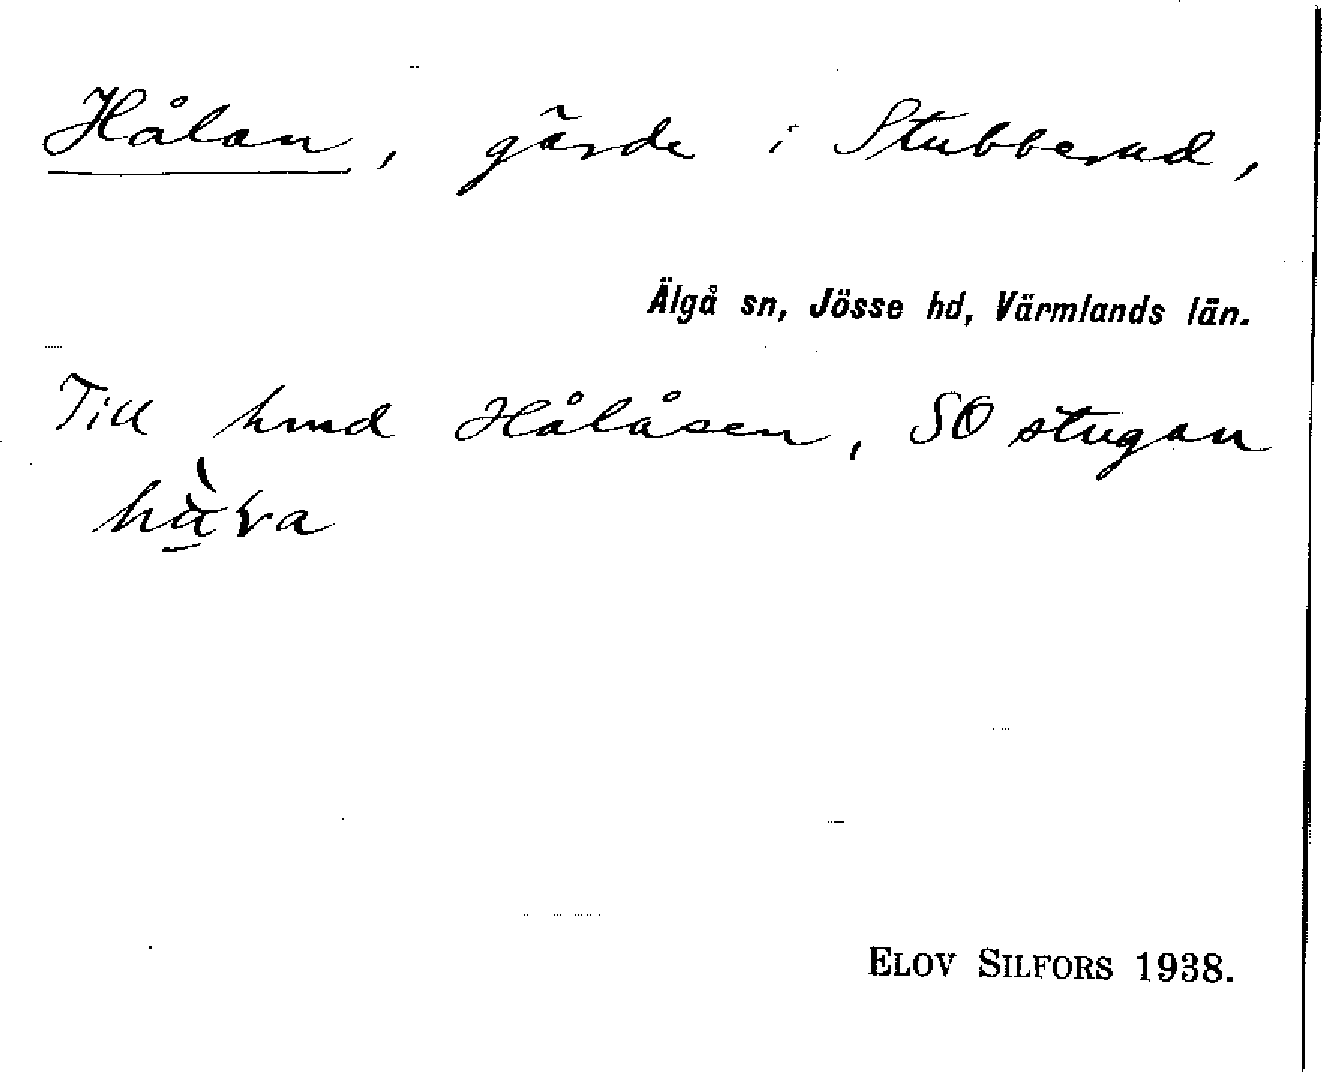 Hålan, gärde i Stubberud,
Älgå sn, Jösse hd, Värmlands län.
Till hmd Hålåsen, SO stugan
ELOV SILFORS 1938.